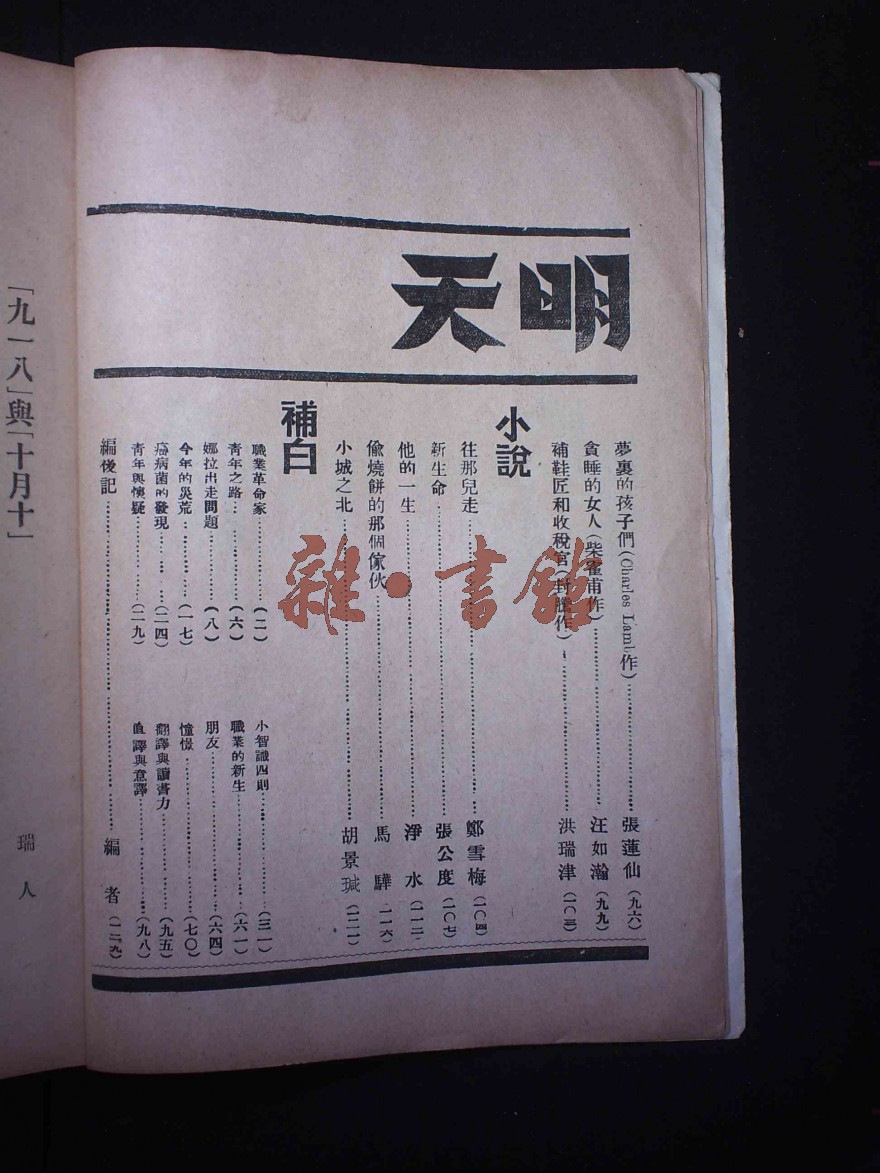 明天
夢裏的孩子們(Charles Lamb作)……張蓮仙(九六)
貪睡的女人(柴霍甫作)……汪如瀚(九九)
補鞋匠和收稅官(封騰作)……洪瑞津(一〇三)
小說
往那兒走……鄭雪梅(一〇四)
新生命……張公度(一〇七)
他的一生……淨水(一一二)
偸燒餅的那個傢伙……馬驊(一一六)
小城之北……胡景瑊(一二一)
補白
職業革命家……(二)
小智識四則……(三一)
靑年之路……(六)
職業的新生……(六一)
娜拉出走問題……(八)
朋友……(六四)
今年的災荒……(一七)
憧憬……(七〇)
癌病菌的發現……(二四)
翻譯與讀書力……(九五)
靑年與懷疑……(二九)
直譯與意譯……(九八)
編後記……編者(一二九)
「九一八」與「十月十」
瑞人
雜·書館